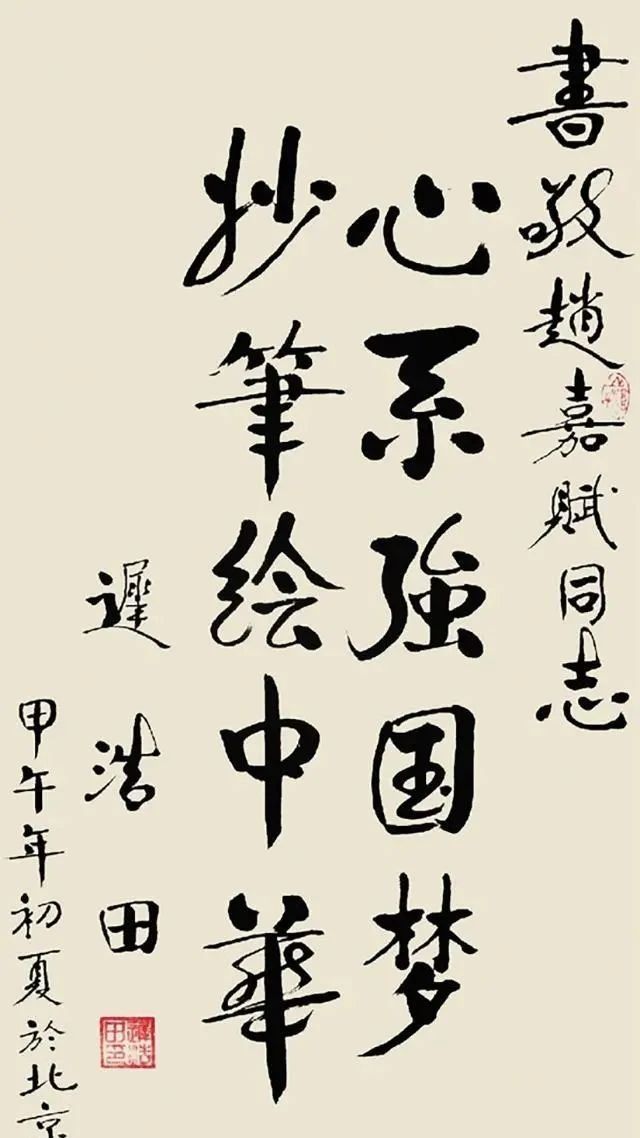 書敬趙嘉賦同志
心系強国梦
抄筆绘中華
遲浩田
甲午年初夏於北京